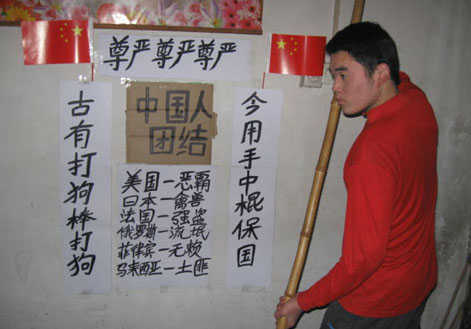 尊严尊严尊严
古有打狗棒打狗
中国人
团结
美国—恶霸
日本—禽兽
法国—强盗
俄罗斯—流氓
菲律宾—无
马来西亚—土匪
今用手中棍保国